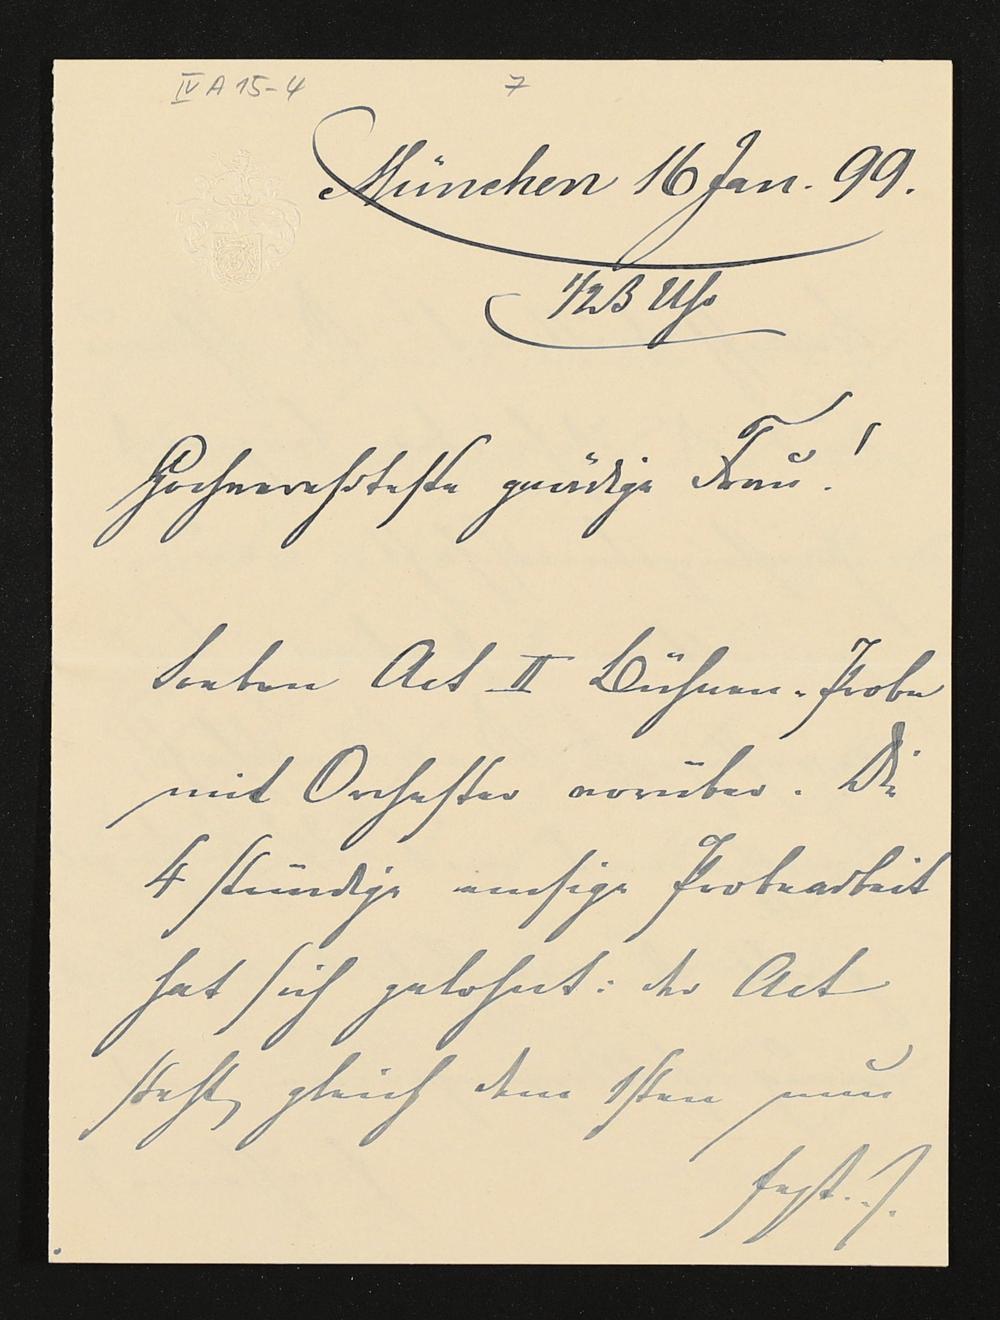 IV A 15-4 7
München 16 Jan. 99.
1/23 Uhr
Hochverehrteste gnädige Frau!
Soeben Act II Bühnen-Probe
mit Orchester vorüber. Die
4 stündige emsige Probearbeit
hat sich gelohnt: der Act
steht, gleich dem 1sten nun
fest.